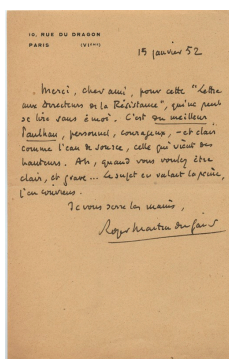 10, RUE DU DRAGON
PARIS (VIème)
15 janvier 52
Merci, cher ami, pour cette "Lettre
aux Directeurs de la Résistance", qui ne peut
se lire sans émoi. C'est du meilleur
Paulhan, personnel, courageux, – et clair
comme l'eau de source, celle qui vient des
hauteurs. Ah, quand vous voulez être
clair, et grave... Le sujet en valait la peine,
j'en conviens.
Je vous serre les mains,
Roger Martin du Gard